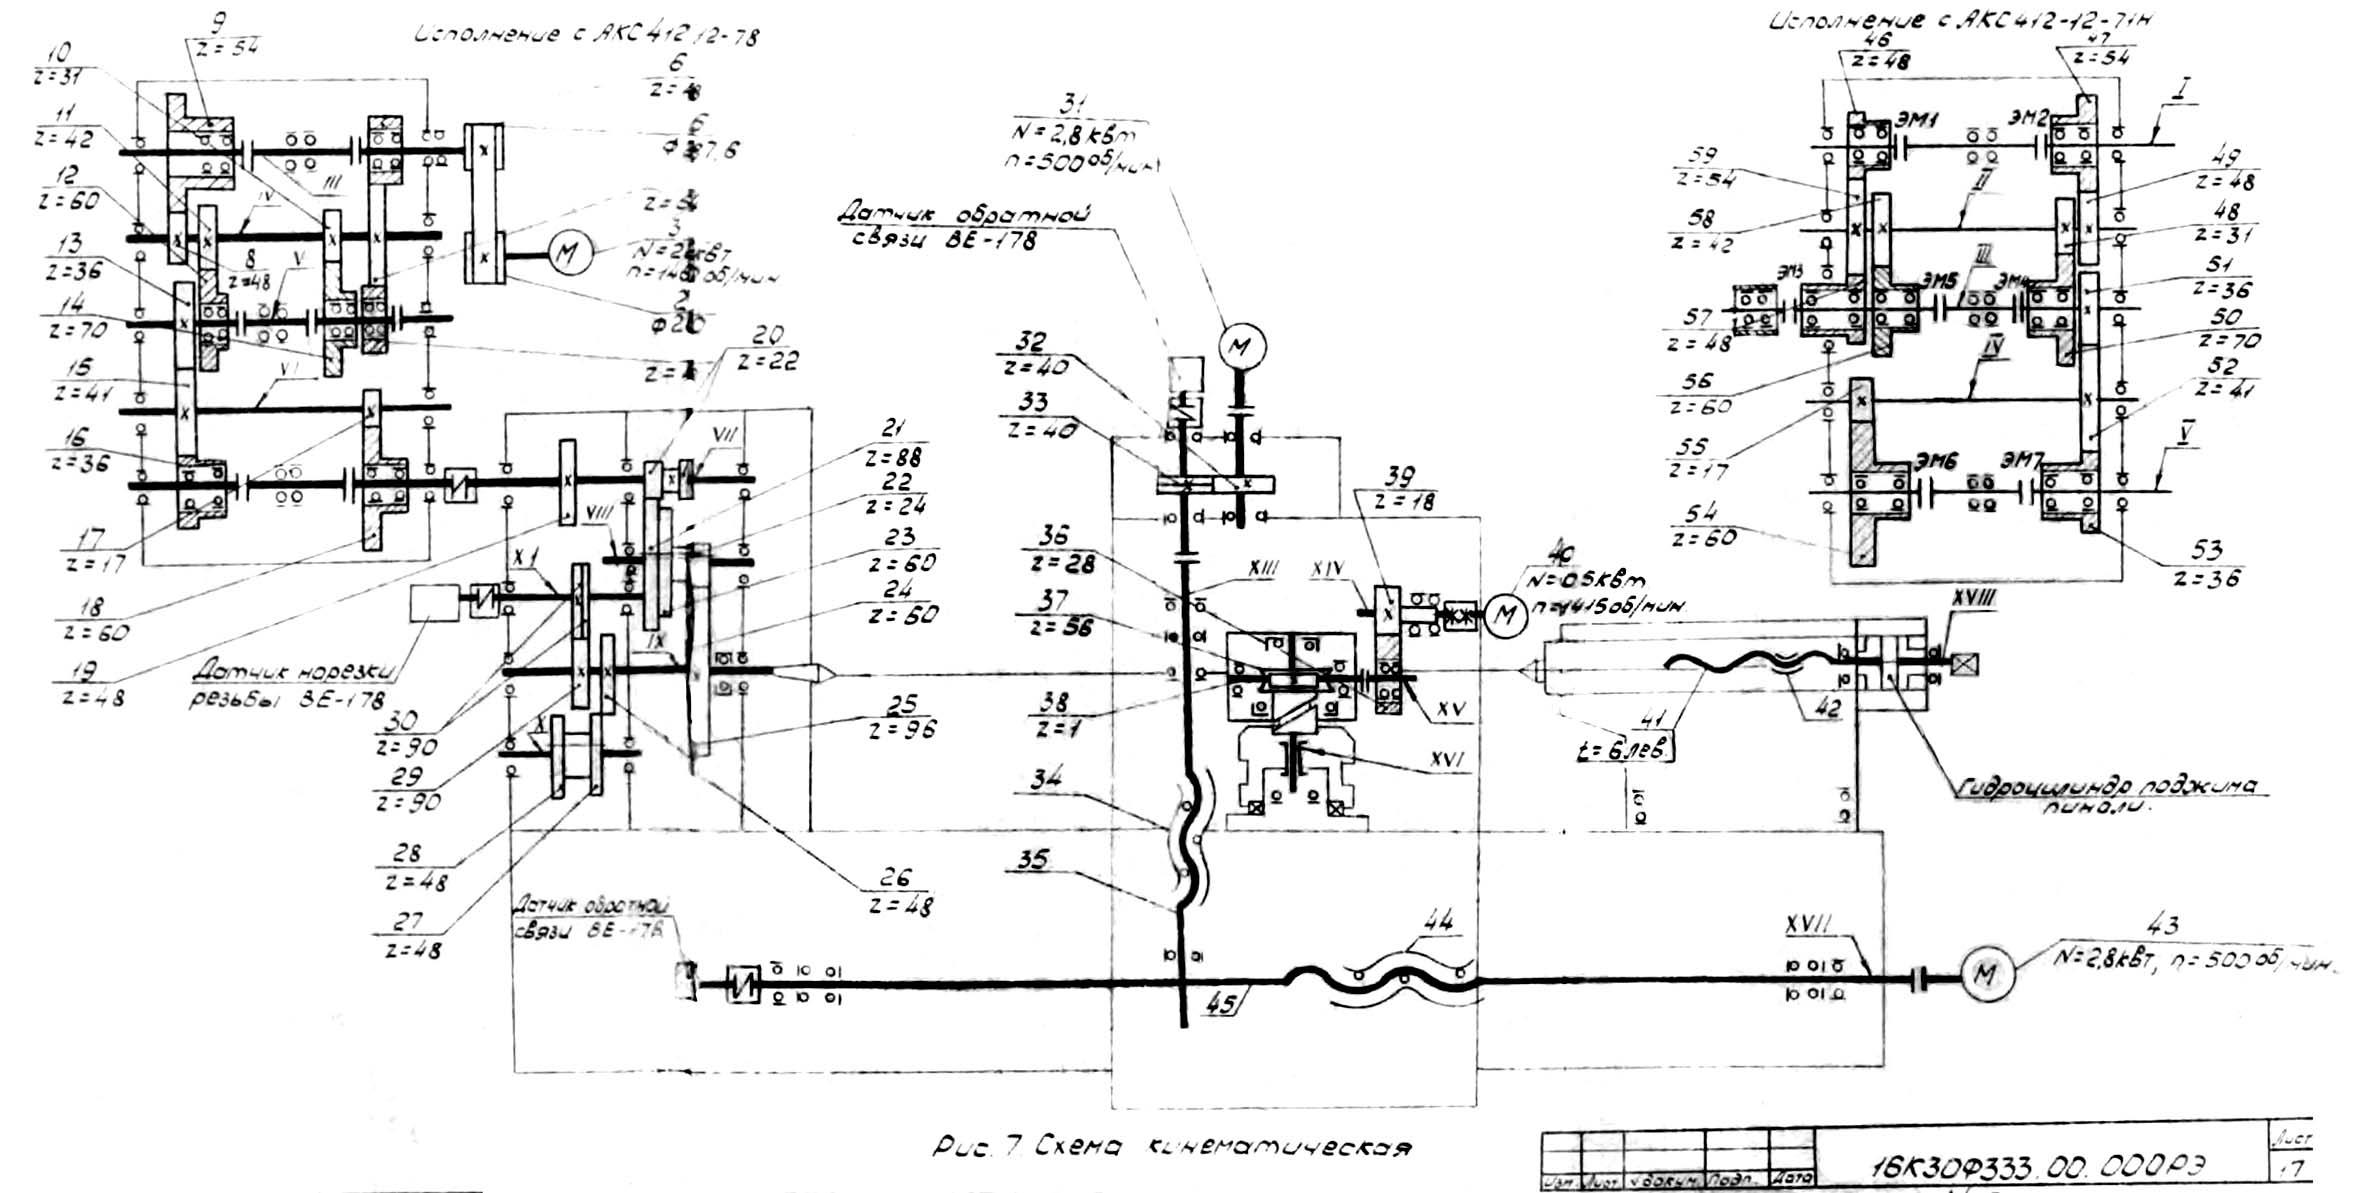 Исполнение с АКС 412 12-78
Исполнение с АКС 412-12-71Н
9
z=54
10
z=31
11
z=42
12
z=60
13
z=36
14
z=70
15
z=41
16
z=36
17
z=17
18
z=60
19
z=48
8
z=48
III
IV
V
VI
6
6
z=54
3
n=1460 об/мин
2
М
20
z=22
21
z=88
22
z=24
23
z=60
24
z=60
25
z=96
26
z=48
27
z=48
28
z=48
29
z=90
30
z=90
VII
VIII
IX
X
XI
Датчик нарезки
резьбы ВЕ-178
Датчик обратной
связи ВЕ-178
31
N=2,8 квт
n=500 об/мин
М
Датчик обратной
связи ВЕ-178
32
z=40
33
z=40
34
35
36
z=28
37
z=56
38
z=1
39
z=18
40
N=0,5 квт
n=1415 об/мин.
М
XIII
XIV
XV
XVI
41
t=6 лев.
42
XVIII
Гидроцилиндр поджима
пиноли.
43
N=2,8 кВт, n=500 об/мин.
М
44
45
XVII
46
z=48
47
z=54
ЭМ1
ЭМ2
I
59
z=54
58
z=42
49
z=48
48
z=31
51
z=36
50
z=70
52
z=41
53
z=36
57
z=48
56
z=60
55
z=17
54
z=60
II
ЭМ3
ЭМ5
III
ЭМ4
IV
ЭМ6
ЭМ7
V
Рис. 7. Схема кинематическая
16К30Ф333.00.000РЭ
Лист
17
Изм. Лист № докум. Подп. Дата